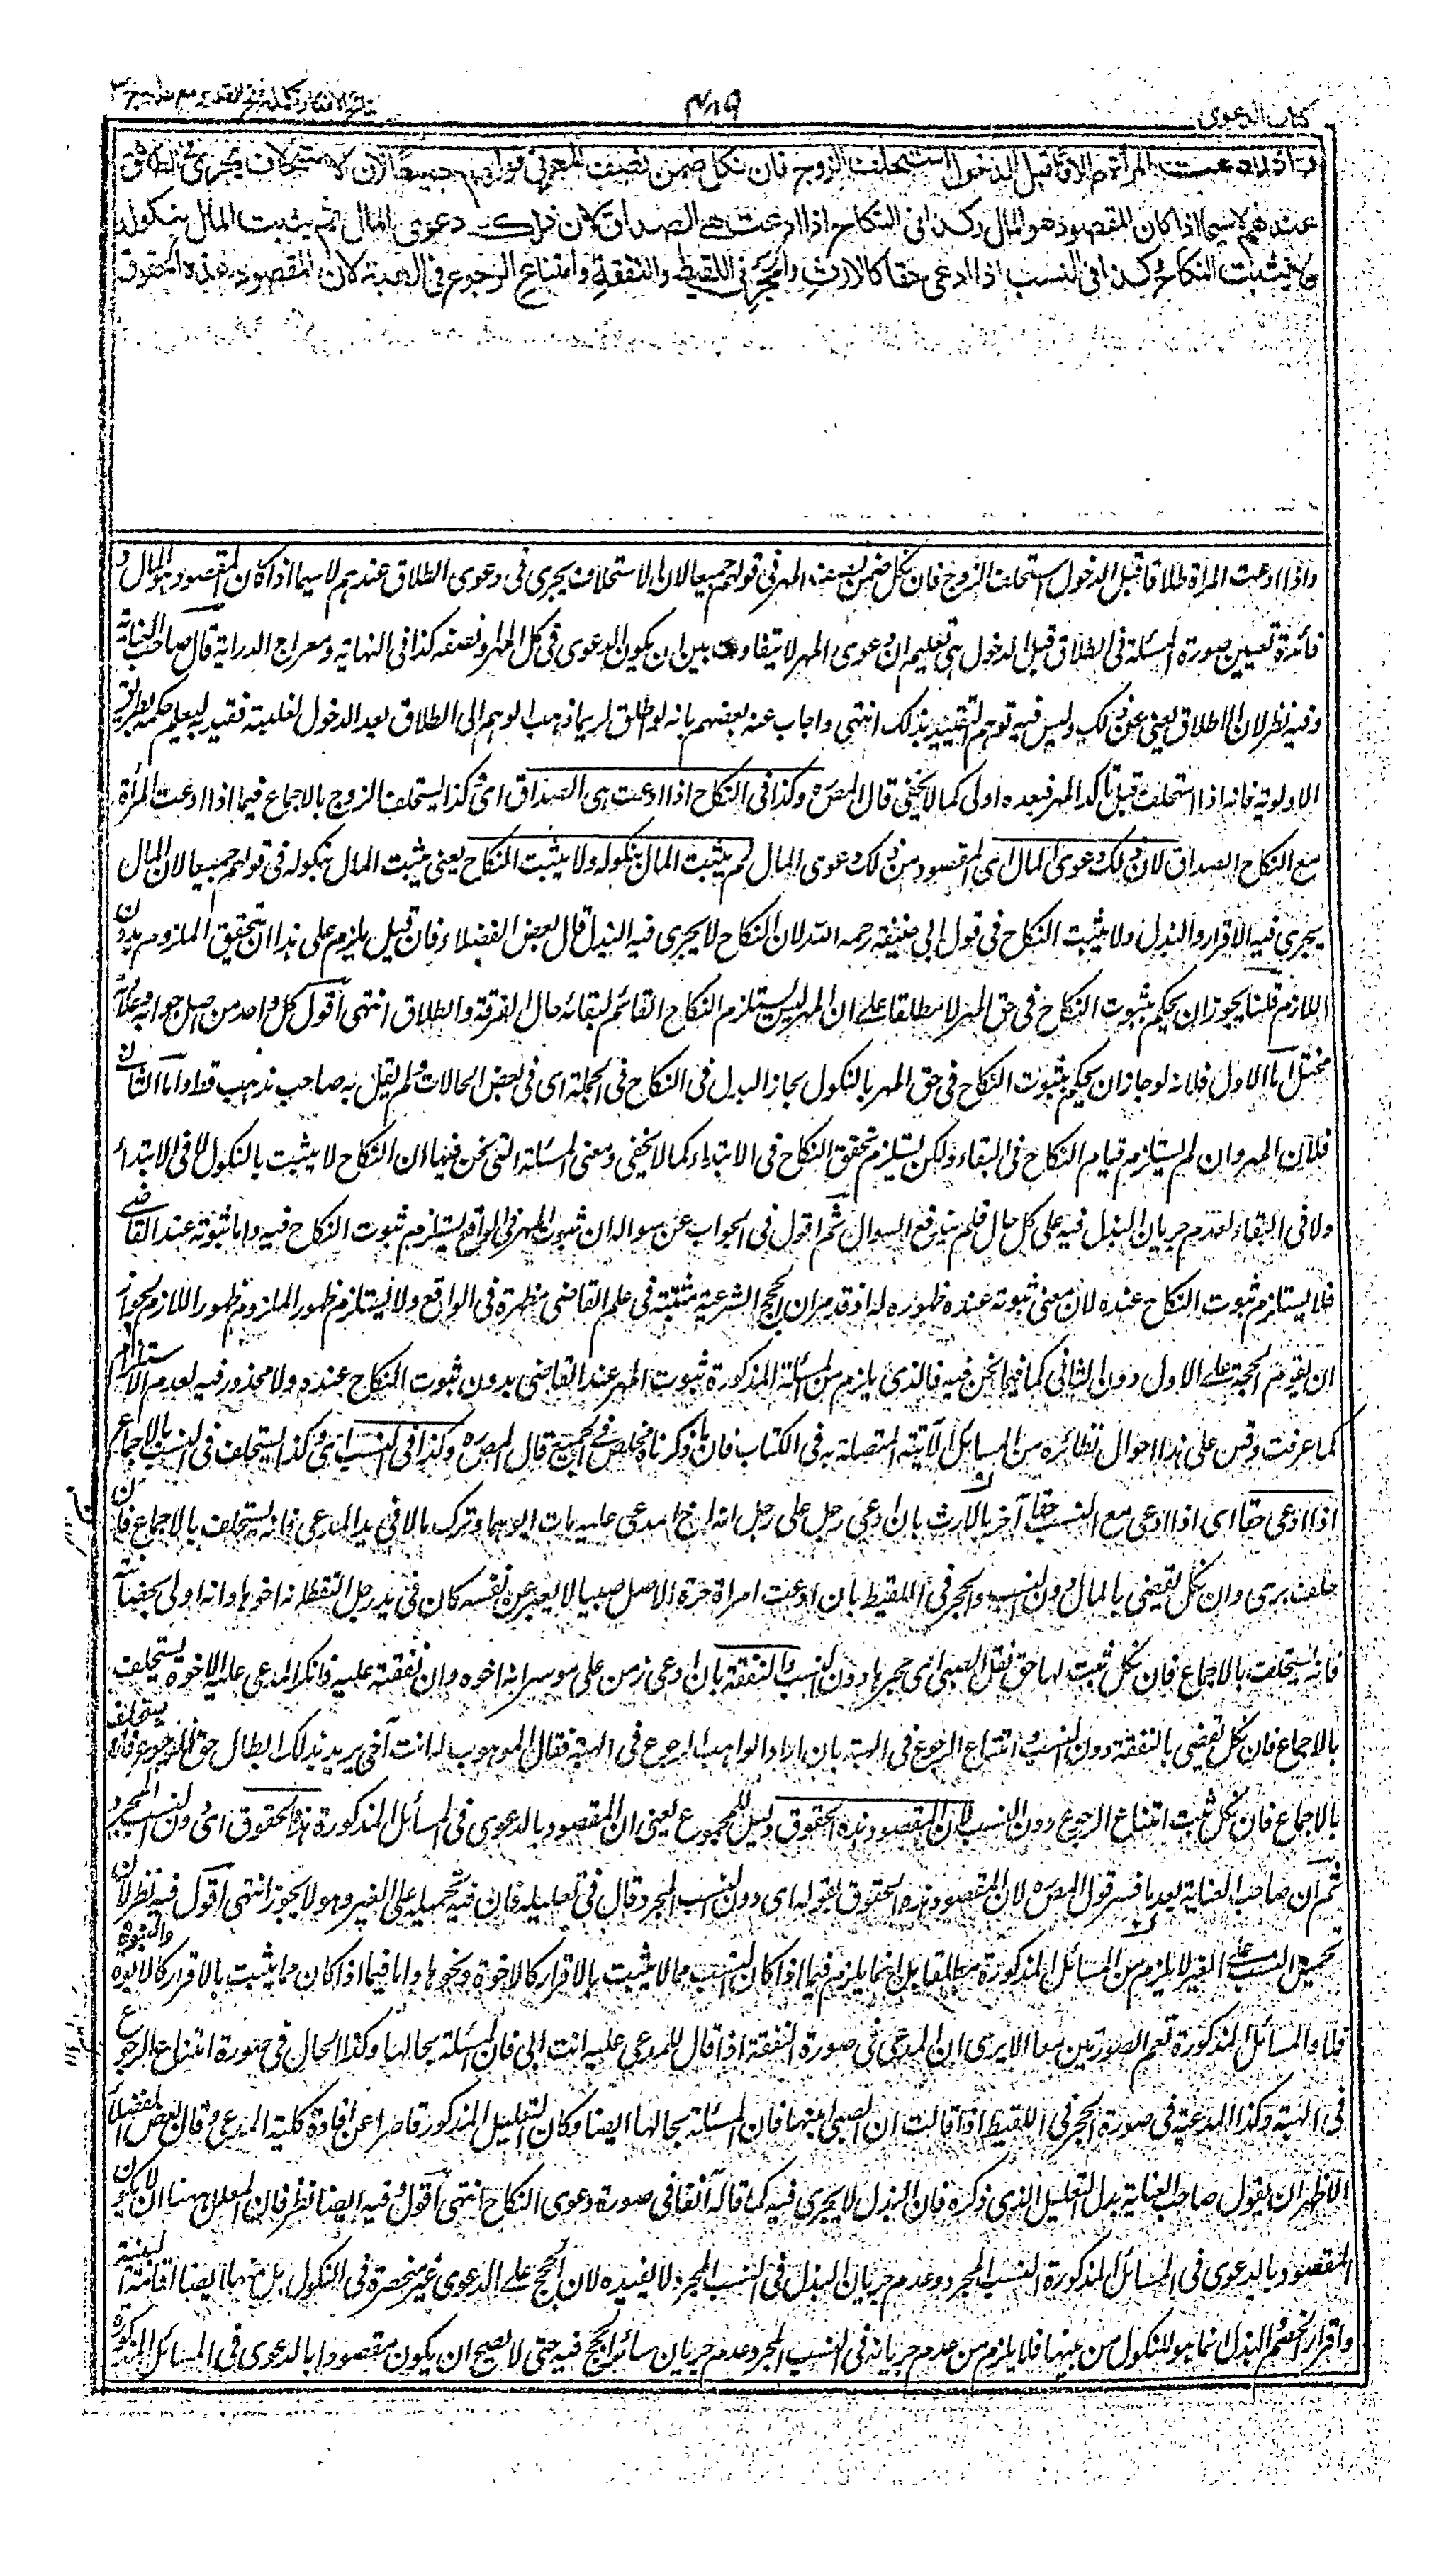 كتاب الدعوى
٤٨٩
نتائج الافكار تكملة فتح القدير مع هدايه ج ٣
واذا ادعت المرأة طلاقا قبل الدخول استحلف الزوج فان نكل ضمن نصف المهر في قولهم جميعا لان الاستحلاف يجري في الطلاق
عندهم لاسيما اذا كان المقصود هو المال وكذا في النكاح اذا ادعت هي الصداق لان ذلك دعوى المال ثم يثبت المال بنكوله
ولا يثبت النكاح وكذا في النسب اذا ادعى حقا كالارث والحجر في اللقيط والنفقة وامتناع الرجوع في الهبة لان المقصود هذه الحقوق
واذا ادعت المرأة طلاقا قبل الدخول استحلف الزوج فان نكل ضمن نصف المهر في قولهم جميعا لان الاستحلاف يجري في دعوى الطلاق عندهم لاسيما اذا كان المقصود هو المال و
فائدة تعيين صورة المسئلة في الطلاق قبل الدخول هي تعليم ان دعوى المهر لا يتفاوت بين ان يكون الدعوى في كل المهر او نصفه كذا في النهاية ومعراج الدراية قال صاحب العناية
وفيه نظر لان الاطلاق يغني عن ذلك وليس فيه توهم التقييد بذلك انتهى واجاب عنه بعضهم بانه لو اطلق لربما ذهب الوهم الى الطلاق بعد الدخول لغلبته فقيد به ليعلم حكمه بطريق
الاولوية فانه اذا استحلف قبل تأكد المهر فبعده اولى كما لا يخفى قال المصره وكذا في النكاح اذا ادعت هي الصداق اي كذا يستحلف الزوج بالاجماع فيما اذا ادعت المرأة
مع النكاح الصداق لان ذلك دعوى المال اي المقصود من ذلك دعوى المال ثم يثبت المال بنكوله ولا يثبت النكاح يعني يثبت المال بنكوله في قولهم جميعا لان المال
يجري فيه الاقرار والبذل ولا يثبت النكاح في قول ابي حنيفة رحمه الله لان النكاح لا يجري فيه البذل قال بعض الفضلاء فان قيل يلزم على هذا ان تحقيق الملزوم بدون
اللازم قلنا يجوز ان يحكم بثبوت النكاح في حق المهر لا مطلقا على ان المهر ليس يستلزم النكاح القائم لبقائه حال الفرقة والطلاق انتهى اقول كل واحد من اصل جوابه وعلاوته
مختل اما الاول فلانه لو جاز ان يحكم بثبوت النكاح في حق المهر بالنكول لجاز البذل في النكاح في الجملة اي في بعض الحالات ولم يقل به صاحب مذهب قط واما الثاني
فلان المهر وان لم يستلزم قيام النكاح في البقاء ولكن يستلزم تحقق النكاح في الابتداء كما لا يخفى ومعنى المسئلة التي نحن فيها ان النكاح لا يثبت بالنكول لا في الابتداء
ولا في البقاء لعدم جريان البذل فيه على كل حال فلم يندفع السوال ثم اقول في الجواب عن سواله ان ثبوت المهر في الواقع يستلزم ثبوت النكاح فيه واما ثبوته عند القاضي
فلا يستلزم ثبوت النكاح عنده لان معنى ثبوته عنده ظهوره له اذ قد مر ان الحجج الشرعية مثبتة في علم القاضي مظهرة في الواقع ولا يستلزم ظهور الملزوم ظهور اللازم لجواز
ان يقوم الحجة على الاول دون الثاني كما فيما نحن فيه فالذي يلزم من المسئلة المذكورة ثبوت المهر عند القاضي بدون ثبوت النكاح عنده ولا محذور فيه لعدم الاستلزام
كما عرفت وقس على هذا احوال نظائره من المسائل الآتية المتصلة به في الكتاب فان ما ذكرناه مخلص في الجميع قال المصره وكذا في النسب اي وكذا يستحلف في النسب بالاجماع
اذا ادعى حقا اي اذا ادعى مع النسب حقا آخر كالارث بان ادعى رجل على رجل انه اخ المدعى عليه مات ابوهما وترك مالا في يد المدعى فانه يستحلف بالاجماع فان
حلف برئ وان نكل يقضي بالمال دون النسب والحجر في اللقيط بان ادعت امرأة حرة الاصل صبيا لا يعبر عن نفسه كان في يد رجل التقطه انه اخوها وانه اولى بحضانته
فانه يستحلف بالاجماع فان نكل ثبت لها حق نقل الصبي الى حجرها دون النسب والنفقة بان ادعى زمن على موسر انه اخوه وان نفقته عليه فانكر المدعى عليه الاخوة يستحلف
بالاجماع فان نكل يقضي بالنفقة دون النسب وامتناع الرجوع في الهبة بان اراد الواهب الرجوع في الهبة فقال الموهوب له انت اخي يريد بذلك ابطال حق الرجوع فانه يستحلف
بالاجماع فان نكل ثبت امتناع الرجوع دون النسب لان المقصود هذه الحقوق دليل للمجموع يعني ان المقصود بالدعوى في المسائل المذكورة هذه الحقوق اي دون النسب المجرد
ثم ان صاحب العناية بعد ما فسر قول المصره لان المقصود هذه الحقوق بقوله اي دون النسب المجرد قال في تعليله فان فيه تحميله على الغير وهو لا يجوز انتهى اقول فيه نظر لان
تحميل النسب على الغير لا يلزم من المسائل المذكورة مطلقا بل انما يلزم فيما اذا كان النسب مما لا يثبت بالاقرار كالاخوة ونحوها واما فيما اذا كان مما يثبت بالاقرار كالابوة والبنوة
فلا والمسائل المذكورة تعم الصورتين معا الا يرى ان المدعى في صورة النفقة اذا قال للمدعى عليه انت ابي فان المسئلة بحالها وكذا الحال في صورة امتناع الرجوع
في الهبة وكذا المدعية في صورة الحجر في اللقيط اذا قالت ان الصبي ابنها فان المسئلة بحالها ايضا وكان التعليل المذكور قاصرا عن افادة كلية المدعى وقال بعض الفضلاء
الاظهر ان يقول صاحب العناية بدل التعليل الذي ذكره فان البذل لا يجري فيه كما قاله آنفا في صورة دعوى النكاح انتهى اقول وفيه ايضا نظر فان المعلل ههنا ان لا يكون
المقصود بالدعوى في المسائل المذكورة النسب المجرد وعدم جريان البذل في النسب المجرد لا يفيده لان الحجج على الدعوى غير منحصرة في النكول بل منها ايضا اقامة البينة
واقرار الخصم والبذل انما هو للنكول من بينها فلا يلزم من عدم جريانه في النسب المجرد عدم جريان سائر الحجج فيه حتى لا يصح ان يكون مقصودا بالدعوى في المسائل المذكورة